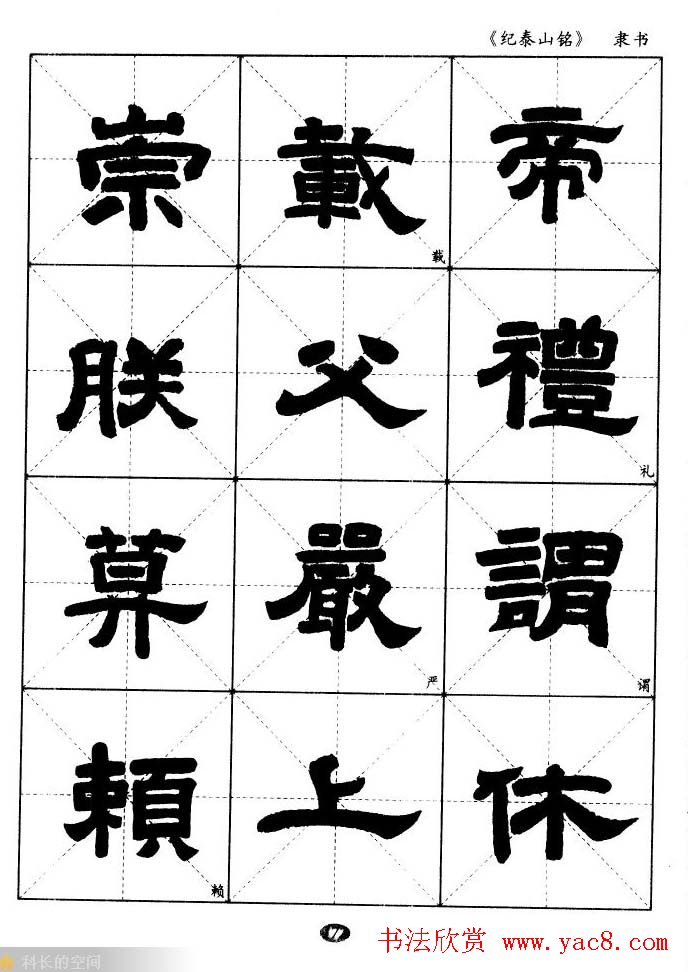 《纪泰山铭》 隶书
帝禮謂休
礼
谓
載父嚴上
载
严
崇朕莫賴
赖
17
书法欣赏 www.yac8.com
科长的空间